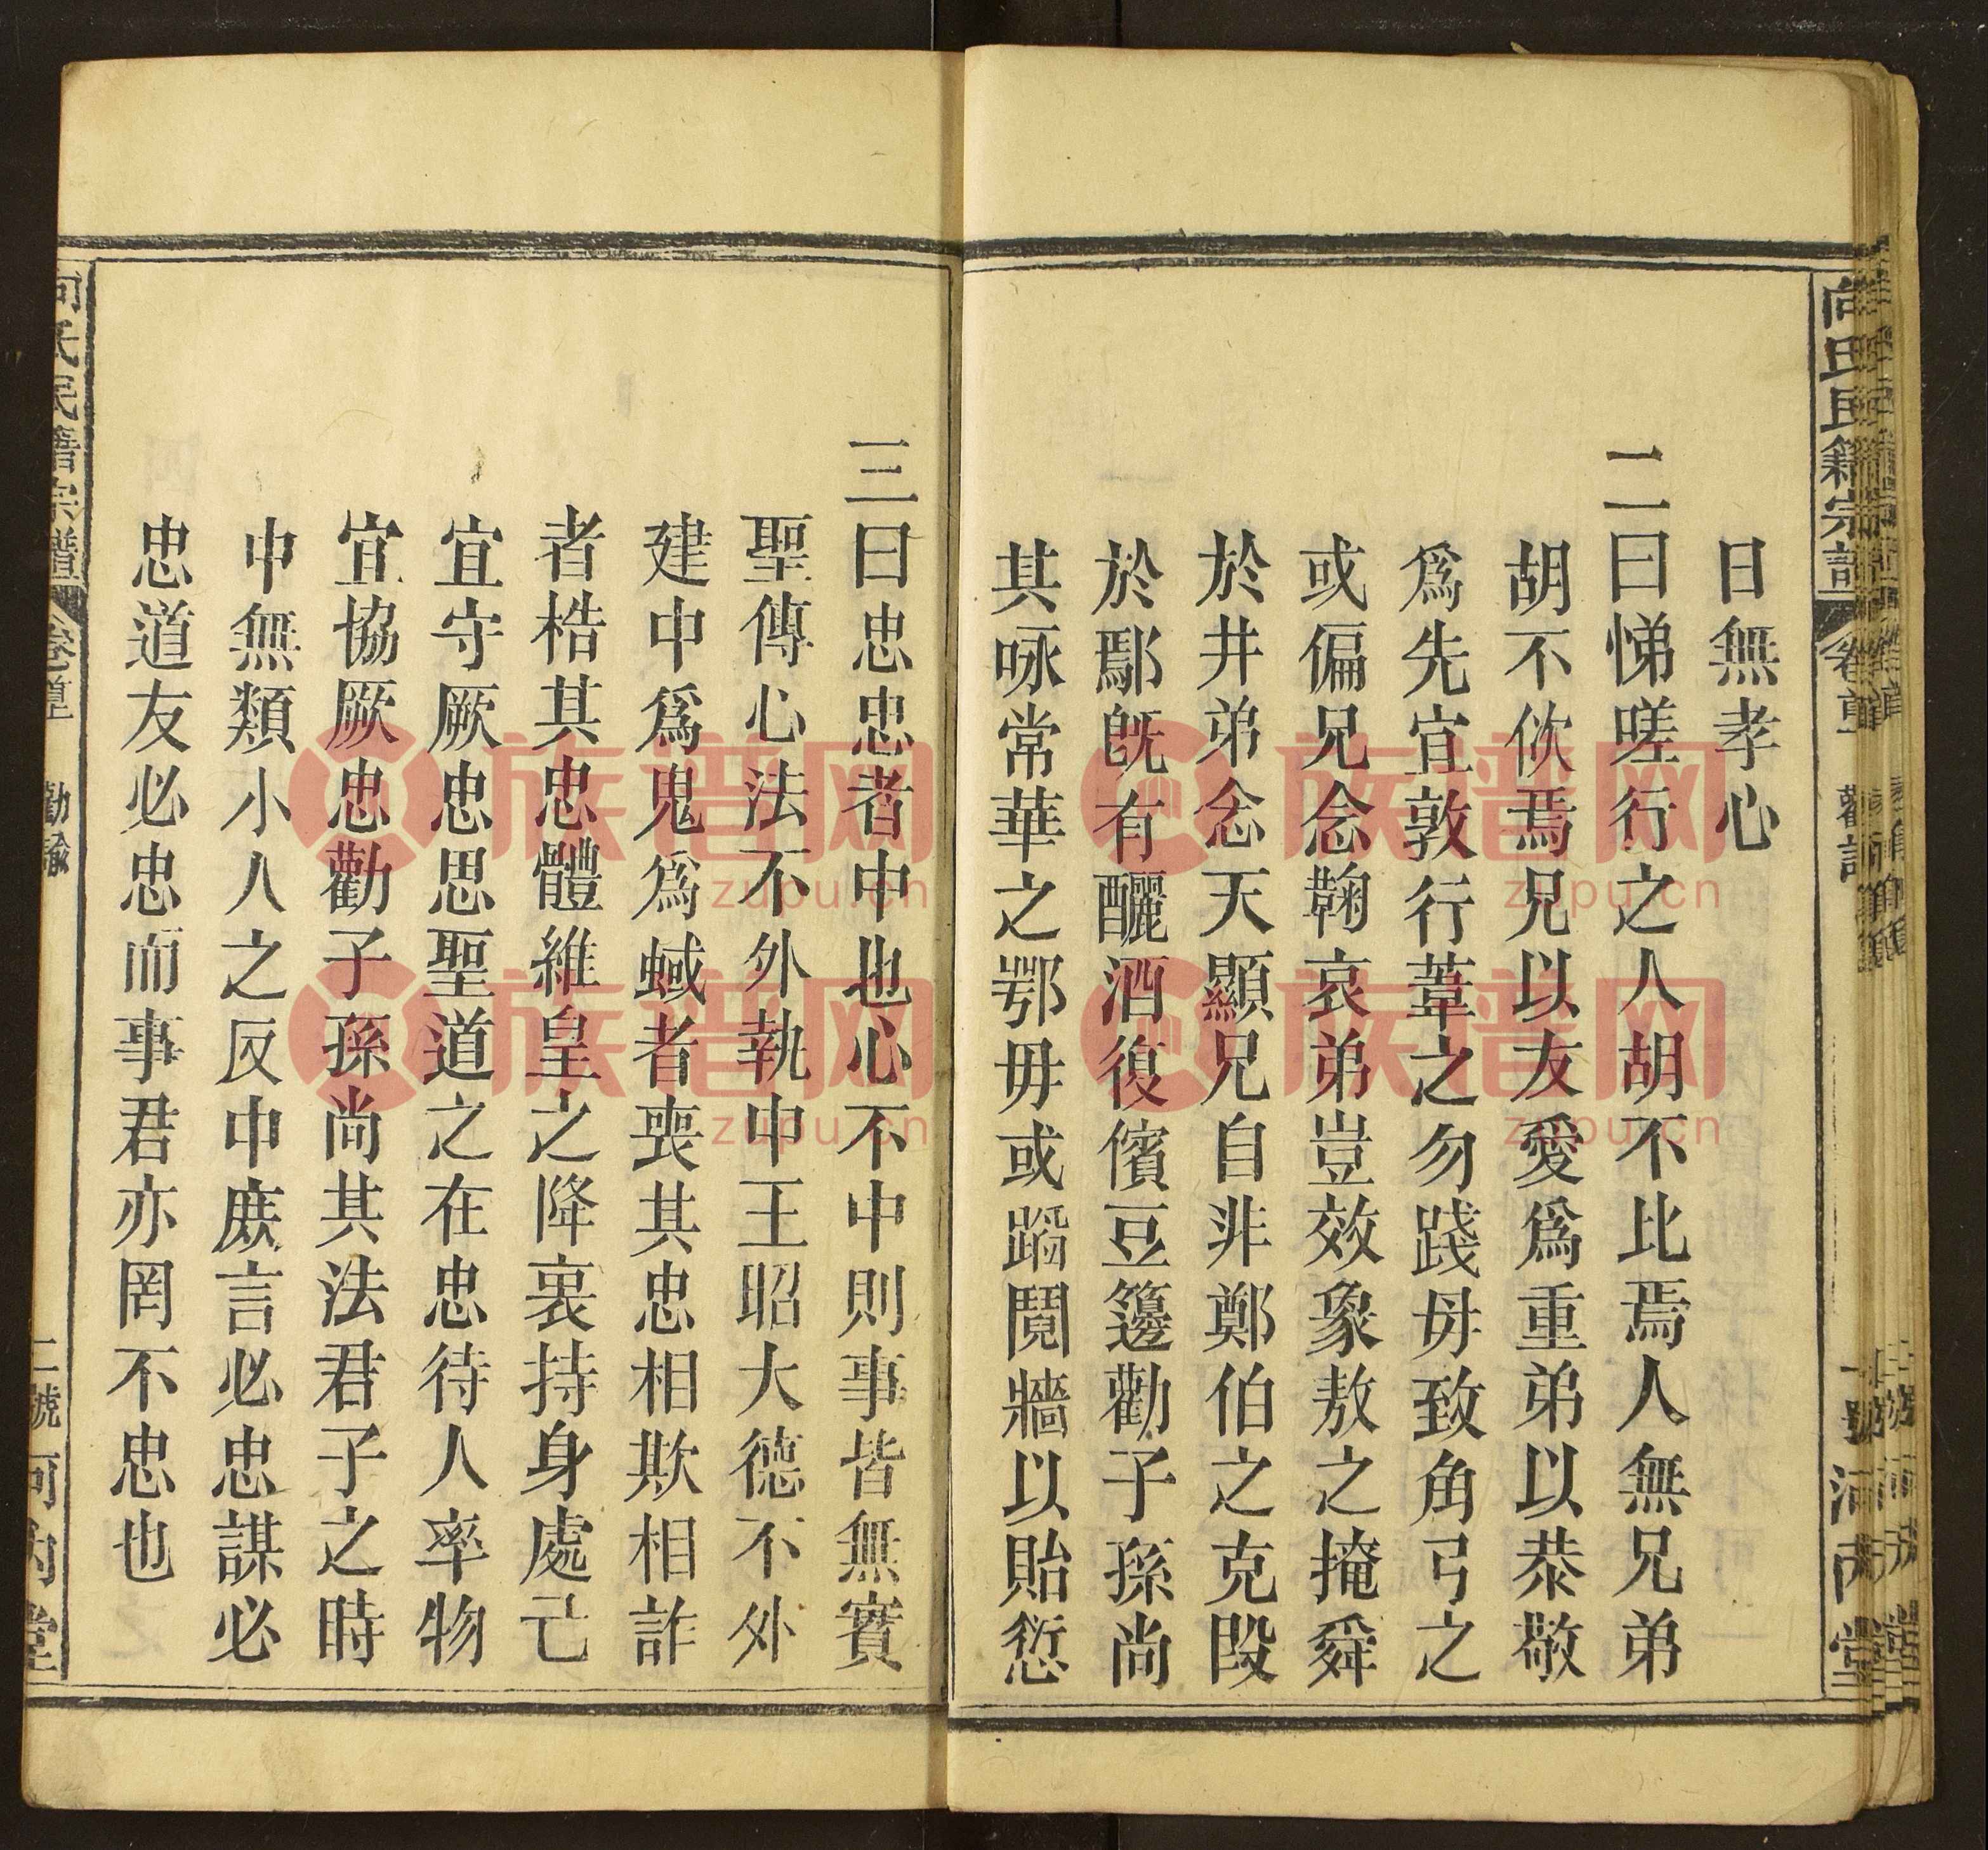 日無孝心
二曰悌嗟行之人胡不比焉人無兄弟
胡不佽焉兄以友愛爲重弟以恭敬
爲先宜敦行葦之勿踐毋致角弓之
或偏兄念鞠哀弟豈效象敖之掩舜
於井弟念天顯兄自非鄭伯之克段
於鄢旣有釃酒復儐豆籩勸子孫尚
其咏常華之鄂毋或蹈鬩牆以貽愆
三曰忠忠者中也心不中則事皆無實
聖傳心法不外執中王昭大德不外
建中爲鬼爲蜮者喪其忠相欺相詐
者梏其忠體維皇之降裏持身處己
宜守厥忠思聖道之在忠待人率物
宜協厥忠勸子孫尚其法君子之時
中無類小人之反中庶言必忠謀必
忠道友必忠而事君亦罔不忠也
向氏民籍宗譜 卷首 勸諭
二號 河內堂
族谱网
zupu.cn
族谱网
zupu.cn
族谱网
zupu.cn
族谱网
zupu.cn